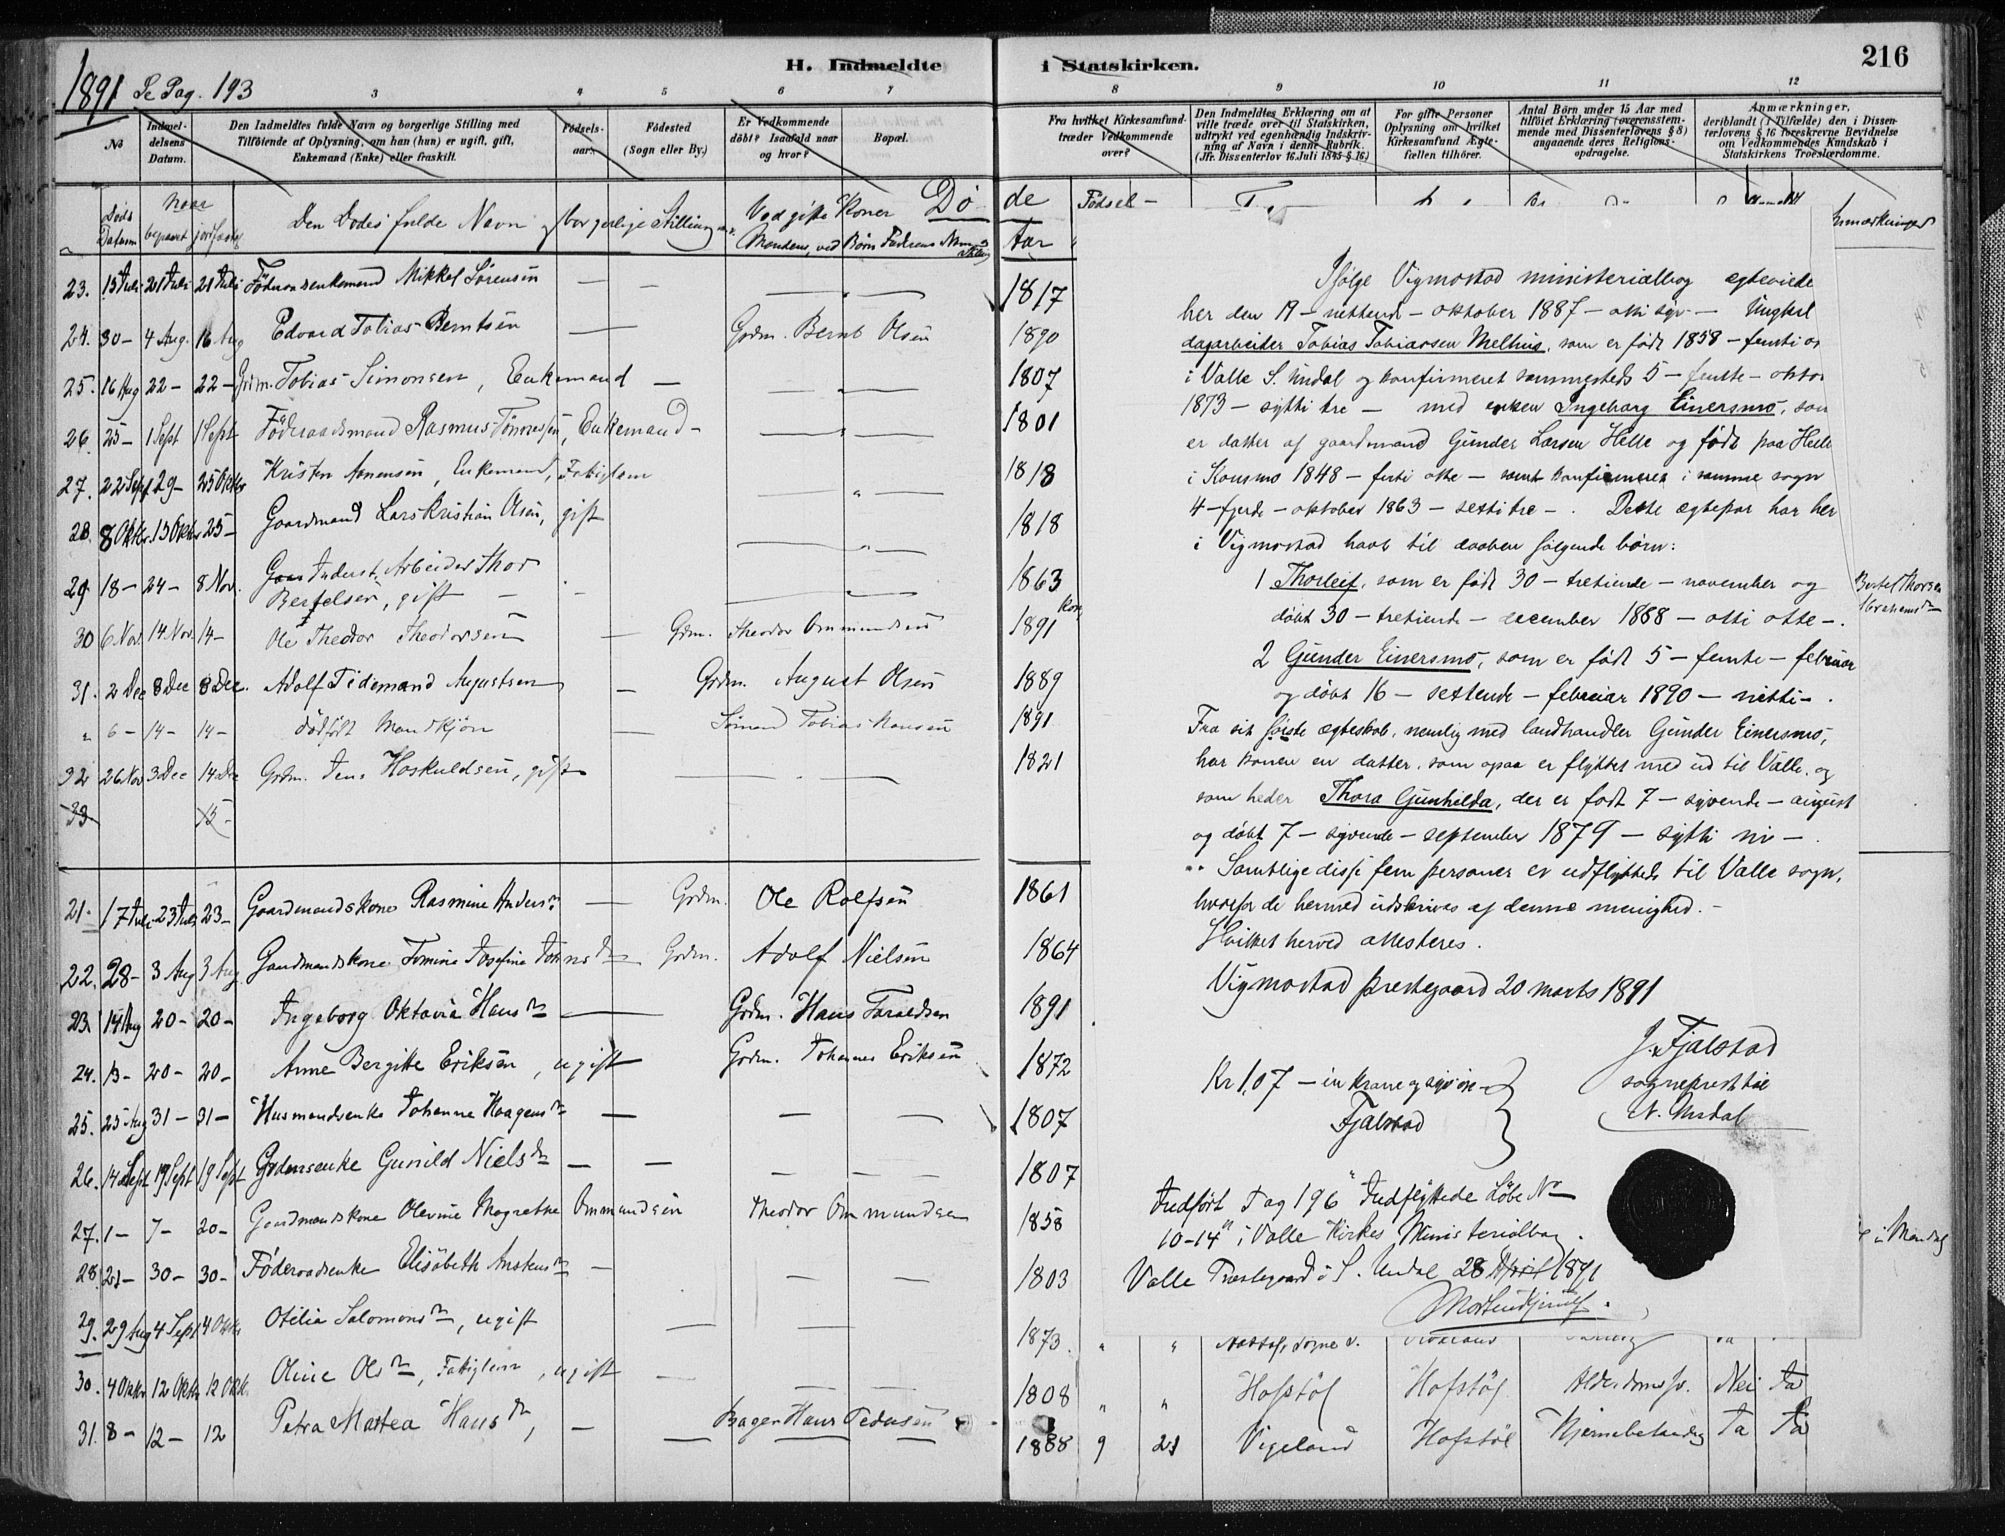 1891 Se Pag. 193
H. Indmeldte i Statskirken.
216
3 4 5 6 7 8 9 10 11 12
No
Indmel-
delsens
Datum.
Den Indmeldtes fulde Navn og borgerlige Stilling med
Tilføiende af Oplysning, om han (hun) er ugift, gift,
Enkemand (Enke) eller fraskilt.
Fødsels-
aar.
Fødested
(Sogn eller By.)
Er Vedkommende
døbt? Isaafald naar
og hvor?
Bopæl.
Fra hvilket Kirkesamfund
træder Vedkommende
over?
Den Indmeldtes Erklæring om at
ville træde over til Statskirken,
udtrykt ved egenhændig Indskriv-
ning af Navn i denne Rubrik.
(Jfr. Dissenterlov 16 Juli 1845 § 16)
For gifte Personer
Oplysning om hvilket
Kirkesamfund Ægte-
fællen tilhører.
Antal Børn under 15 Aar med
tilføiet Erklæring (overensstem-
mende med Dissenterlovens § 8)
angaaende deres Religions-
opdragelse.
Anmærkninger,
deriblandt (i Tilfælde) den i Dissen-
terlovens § 16 foreskrevne Bevidnelse
om Vedkommendes Kundskab i
Statskirkens Troeslærdomme.
Døds Datum
Naar
begravet jordfæstet
Den Dødes fulde Navn og borgerlige Stilling
Ved gifte Koner
Mandens, ved Børn Faderens Navn
Døde
Aar
Fødsel
23. 15 Juli 21 Juli 21 Juli Føderaadsenkemand Mikkel Sørensen 1817
24. 30 - 4 Aug. 16 Aug Edvard Tobias Berntsen Grdm. Bernt Olsen 1890
25. 16 Aug 22 - 22 - Grdm. Tobias Simonsen, Enkemand 1807
26. 25 - 1 Sept 1 Sept Føderaadsmand Rasmus Tønnessen, Enkemand 1801
27. 22 Sept 29 - 25 Oktbr Kristen Aanensen, Enkemand, Fattiglem 1818
28. 8 Oktbr. 13 Oktbr 25 - Gaardmand Lars Kristian Olsen, gift 1818
29. 18 - 24 - 8 Nov. Inderst. Arbeider Thor
Bertelsen, gift 1863
30 6 Nov. 14 Nov. 14 - Ole Theodor Theodorsen Grdm. Theodor Ommundsen 1891
31. 2 Dec 8 Dec 8 Dec. Adolf Tidemand Augustsen Grdm. August Olsen 1889
" 6 - 14 - 14 - dødfødt Mandkjøn Sømand Tobias Hansen 1891
32 26 Nov 3 Dec 14 Dec Grdm. Jens Hoskuldsen, gift 1821
33 15 -
21. 17 Juli 23 Juli 23 - Gaardmandskone Rasmine Andersdn Grdm. Ole Rolfsen 1861
22. 28 - 3 Aug 3 Aug Gaardmandskone Tomine Josefine Johnsdn Grdm. Adolf Nielsen 1864
23. 14 Aug 20 - 20 - Ingeborg Oktavia Hansdn Grdm. Hans Taraldsen 1891
24. 13 - 20 - 20 - Anne Bergitte Eriksen, ugift Grdm. Johannes Eriksen 1872
25. 25 Aug 31 - 31 - Husmandsenke Johanne Haagensdn 1807
26. 14 Sept 19 Sept 19 Sept Grdmsenke Gunild Nielsdn 1807
27. 1 - 7 - 20 - Gaardmandskone Olevine Magrethe Ommundsen Theodor Ommundsen 1858
28. 21 - 30 - 30 - Føderaadsenke Elisabeth Anstensdn 1803
29. 29 Aug 4 Sept 4 Oktbr Otilia Salomonsdn, ugift 1873.
30. 4 Oktbr 12 Oktbr 12 Oktbr Oline Olsdn, Fattiglem, ugift 1808 Hofstøl Hofstøl Alderdomssv. Nei Ja
31. 8 - 12 - 12 Petra Mathea Hansdn, Bager Hans Pedersen 1888 9 21 Vigeland Hofstøl Hjernebetændelse Ja Ja
Anmærkninger
Bertel Thorsen
Abrahamsdn
i Mandal
Ifølge Vigmostad ministerialbog egteviede
her den 19 - nittende - oktober 1887 - otti syv - Ungkarl
dagarbeider Tobias Tobiassen Melhus, som er født 1858 - femti ot
i Valle S. Undal og konfirmeret sammesteds 5 - femte - oktob
1873 - sytti tre - med enken Ingeborg Einersmo, som
er datter af gaardmand Gunder Larsen Helle og født paa Helle
i Konsmo 1848 - førti otte - samt konfirmeret i samme sogn
4 - fjerde - oktober 1863 - sekstitre -. Dette egtepar har her
i Vigmostad havt til daaben følgende børn:
1 Thorleif, som er født 30 - tretiende - november og
døbt 30 - tretiende - december 1888 - otti otte -.
2 Gunder Einersmo, som er født 5 - femte - februar
og døbt 16 - sekstende - februar 1890 - nitti -.
Fra sit første ægteskab, nemlig med landhandler Gunder Einersmo,
har konen en datter, som ogsaa er flyttet med ud til Valle, og
som heder Thora Gunhilda, der er født 7 - syvende - august
og døbt 7 - syvende - september 1879 - sytti ni -.
Samtlige disse fem personer er udflyttede til Valle sogn,
hvorfor de hermed udskrives af denne menighed. -
Hvilket herved attesteres.
Vigmostad prestegaard 20 marts 1891
J. Fjalstad
sogneprest til
N. Undal
Kr 1,07 - en krone og syv øre -
Fjalstad
Indført Pag 196 Indflyttede Løbe No
10-14 i Valle Kirkes Ministerialbog.
Valle Prestegaard i S. Undal 28 April 1891